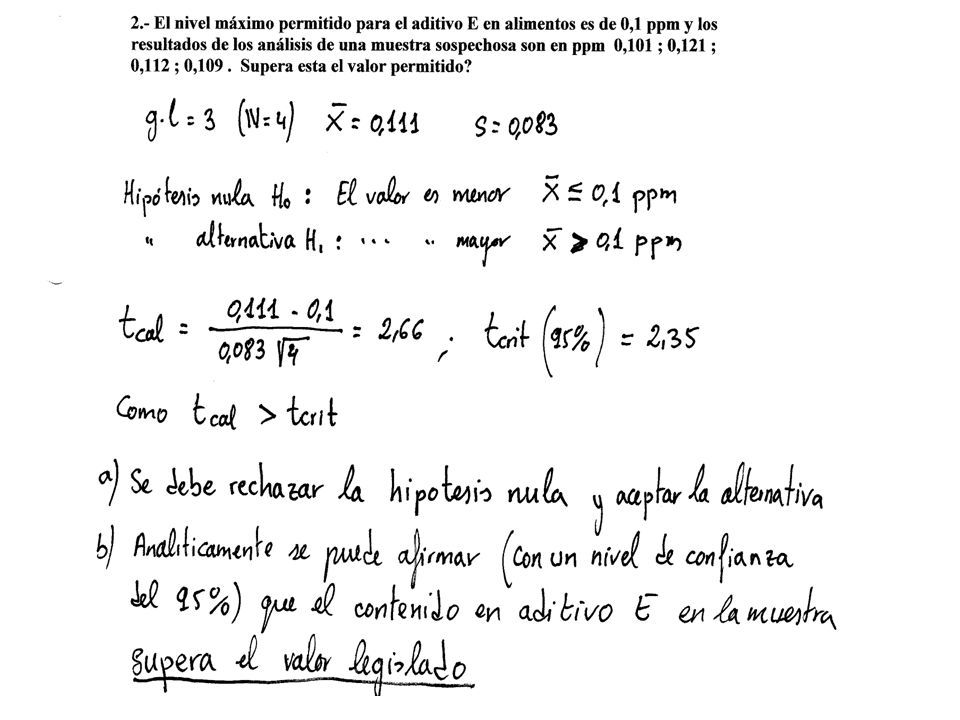 2.- El nivel máximo permitido para el aditivo E en alimentos es de 0,1 ppm y los
resultados de los análisis de una muestra sospechosa son en ppm 0,101 ; 0,121 ;
0,112 ; 0,109 . Supera esta el valor permitido?
g.l = 3 (N=4) X̄ = 0,111 S = 0,083
Hipótesis nula H₀ : El valor es menor X̄ ≤ 0,1 ppm
" alternativa H₁ : ... " mayor X̄ > 0,1 ppm
t cal = (0,111 - 0,1) / (0,083 √4) = 2,66 ; t crit (95%) = 2,35
Como t cal > t crit
a) Se debe rechazar la hipotesis nula y aceptar la alternativa
b) Analiticamente se puede afirmar (con un nivel de confianza
del 95%) que el contenido en aditivo E en la muestra
supera el valor legislado